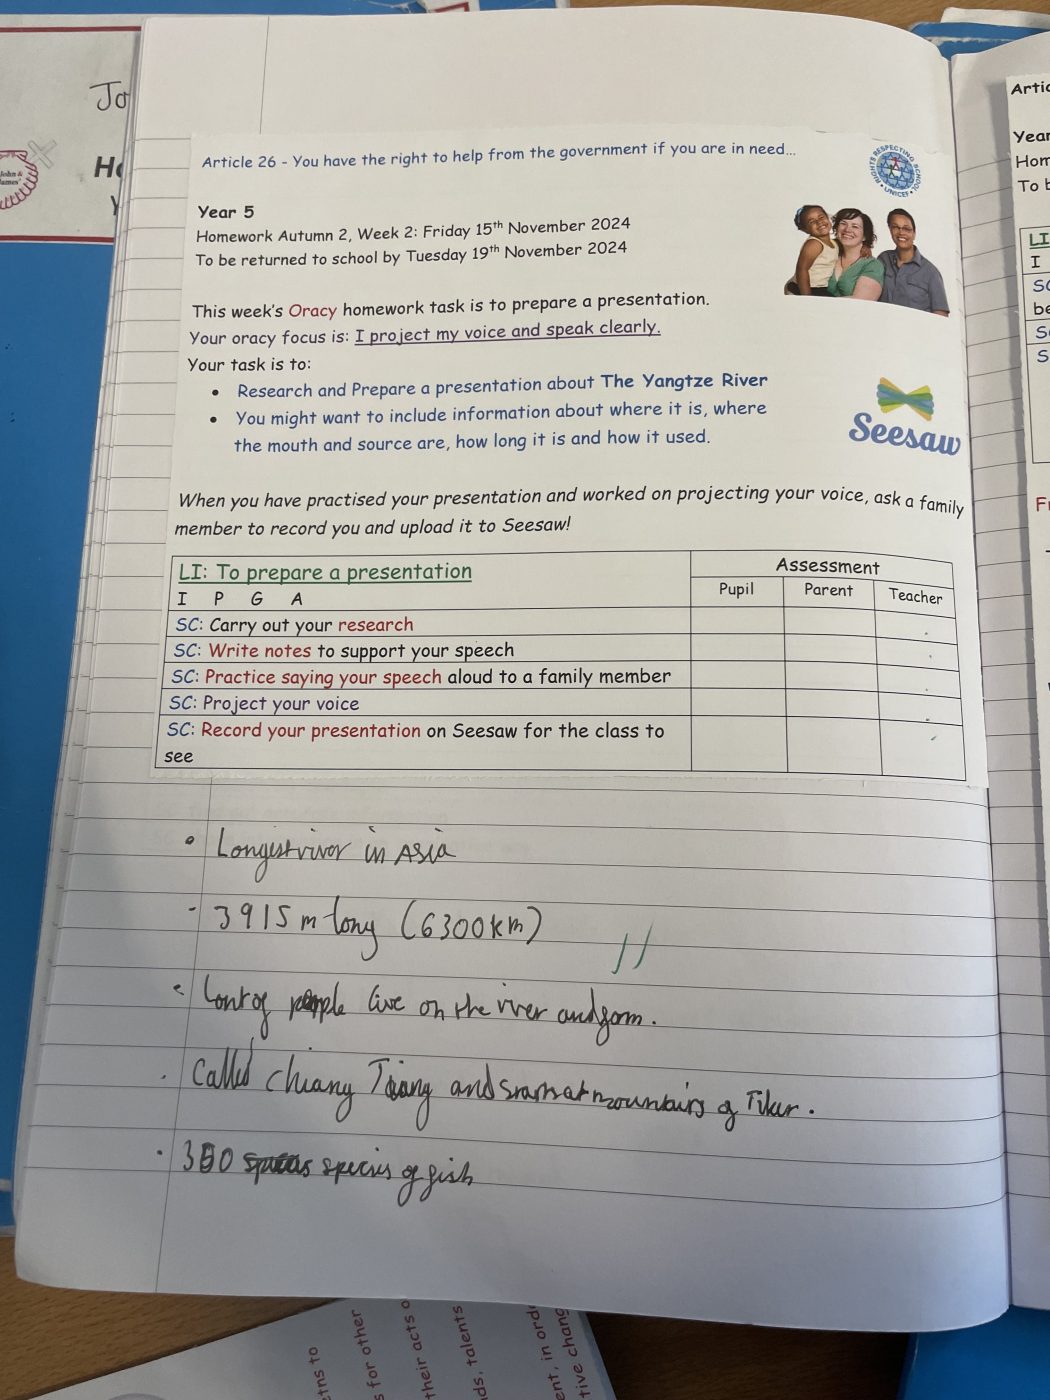 Jo
Ho
Y
John &
James'
Article 26 - You have the right to help from the government if you are in need...
RIGHTS RESPECTING SCHOOLS
UNICEF
Year 5
Homework Autumn 2, Week 2: Friday 15th November 2024
To be returned to school by Tuesday 19th November 2024
This week's Oracy homework task is to prepare a presentation.
Your oracy focus is: I project my voice and speak clearly.
Your task is to:
• Research and Prepare a presentation about The Yangtze River
• You might want to include information about where it is, where
the mouth and source are, how long it is and how it used.
Seesaw
When you have practised your presentation and worked on projecting your voice, ask a family
member to record you and upload it to Seesaw!
LI: To prepare a presentation
I P G A
Assessment
Pupil Parent Teacher
SC: Carry out your research
SC: Write notes to support your speech
SC: Practice saying your speech aloud to a family member
SC: Project your voice
SC: Record your presentation on Seesaw for the class to
see
• Longest river in Asia
- 3915 m long (6300km)
people live on the river and
. Called Chiang and of
• 350 species of fish
Artic
Year
Hom
To b
LI
I
SC
be
S
S
Fr
tns to
s for other
their acts o
ds, talents
ent, in orde
tive chang